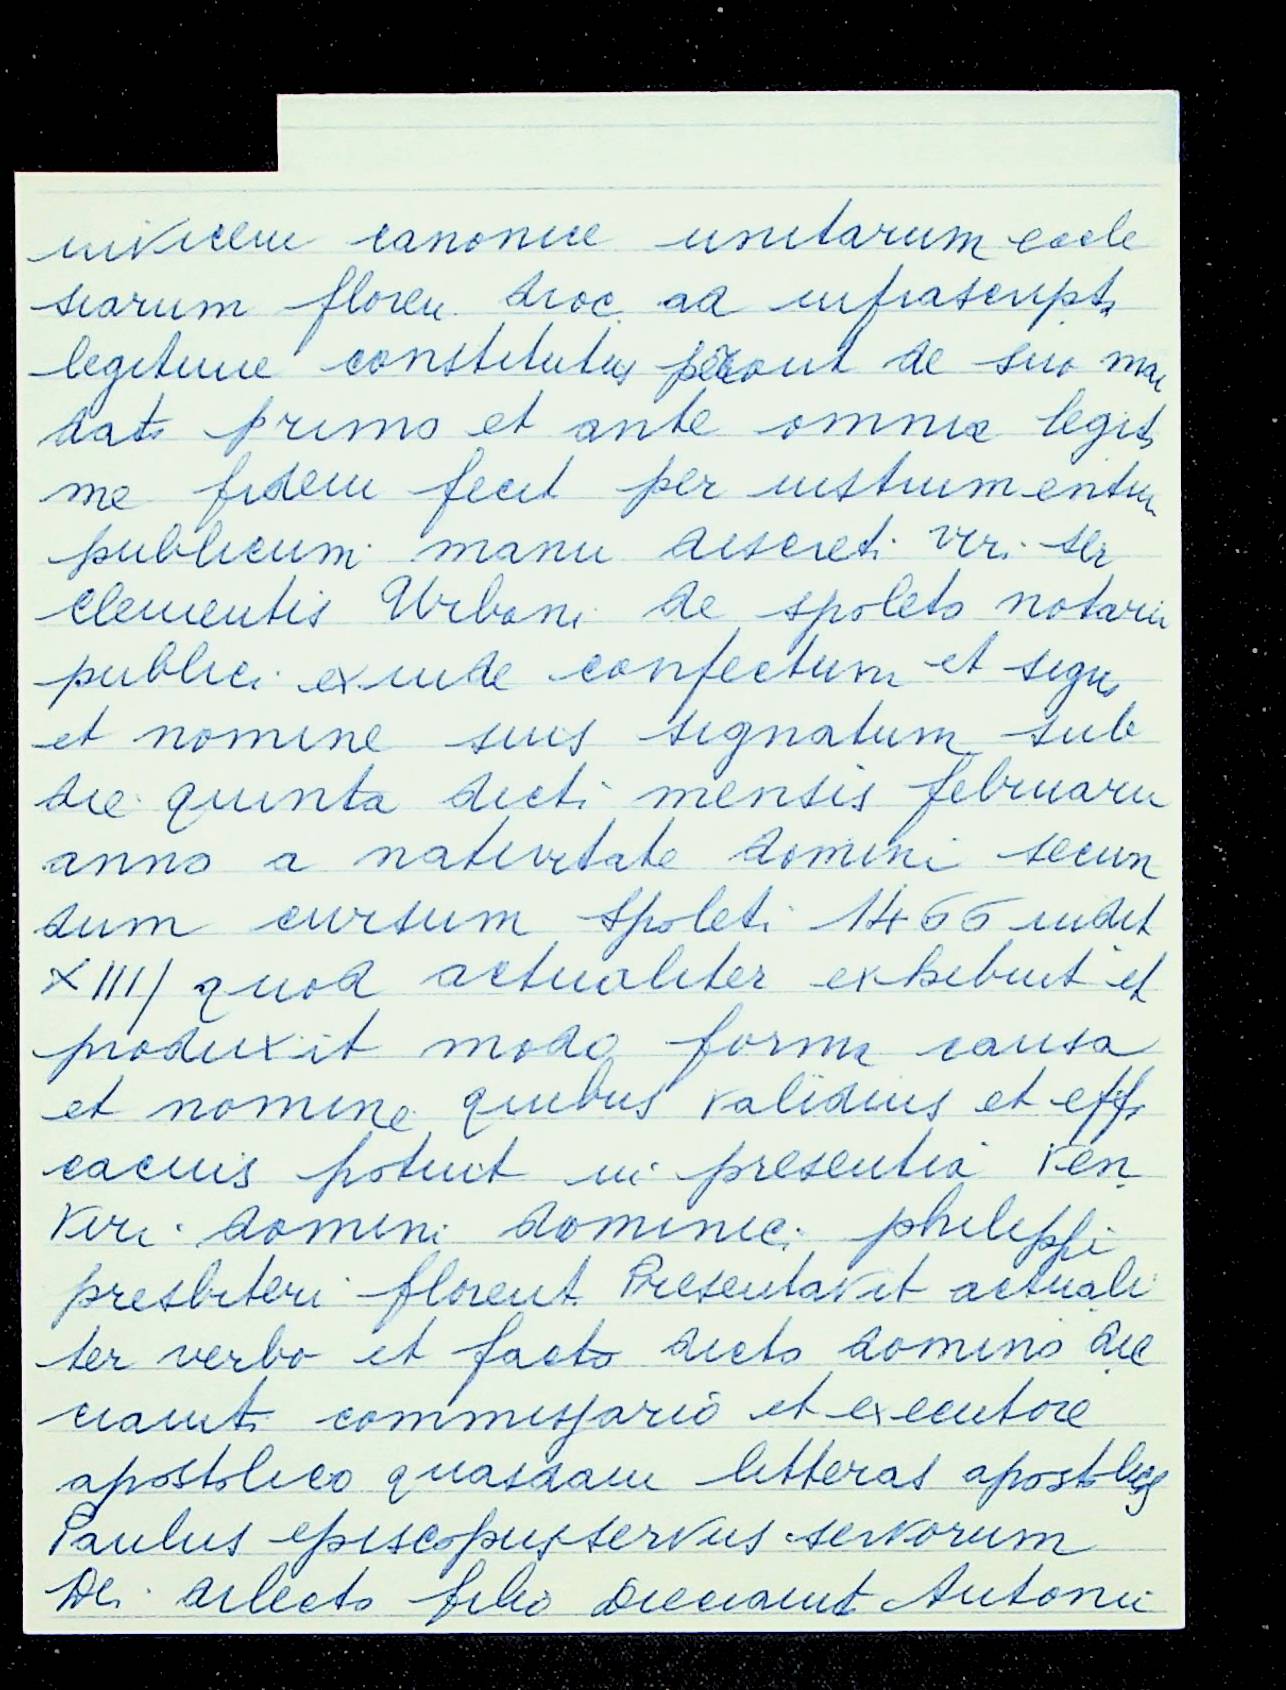 invicem canonice unitarum eccle
siarum floren. dioc. ad infrascripta
legitime constitutus prout de suo man
dato primo et ante omnia legiti
me fidem fecit per instrumentum
publicum manu discreti viri ser
Clementis Urbani de spoleto notarii
publici exinde confectum et signo
et nomine suis signatum sub
die quinta dicti mensis februarii
anno a nativitate domini secun
dum cursum spoleti 1466 indict
XIIII quod actualiter exhibuit et
produxit modo forma causa
et nomine quibus validius et effi
cacius potuit in presentia ven.
viri domini dominici philippi
presbiteri florent. Presentavit actuali
ter verbo et facto dicto domino
commissario et executore
apostolico quasdam litteras apostolicas
Paulus episcopus servus servorum
Dei dilecto filio Antonii